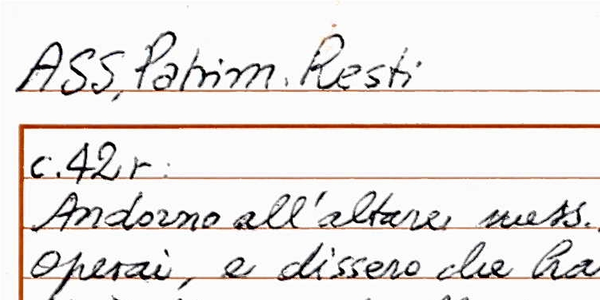 ASS, Patrim. Resti
c. 42r:
Andorno all'altare mess.
Operai, e dissero che ha